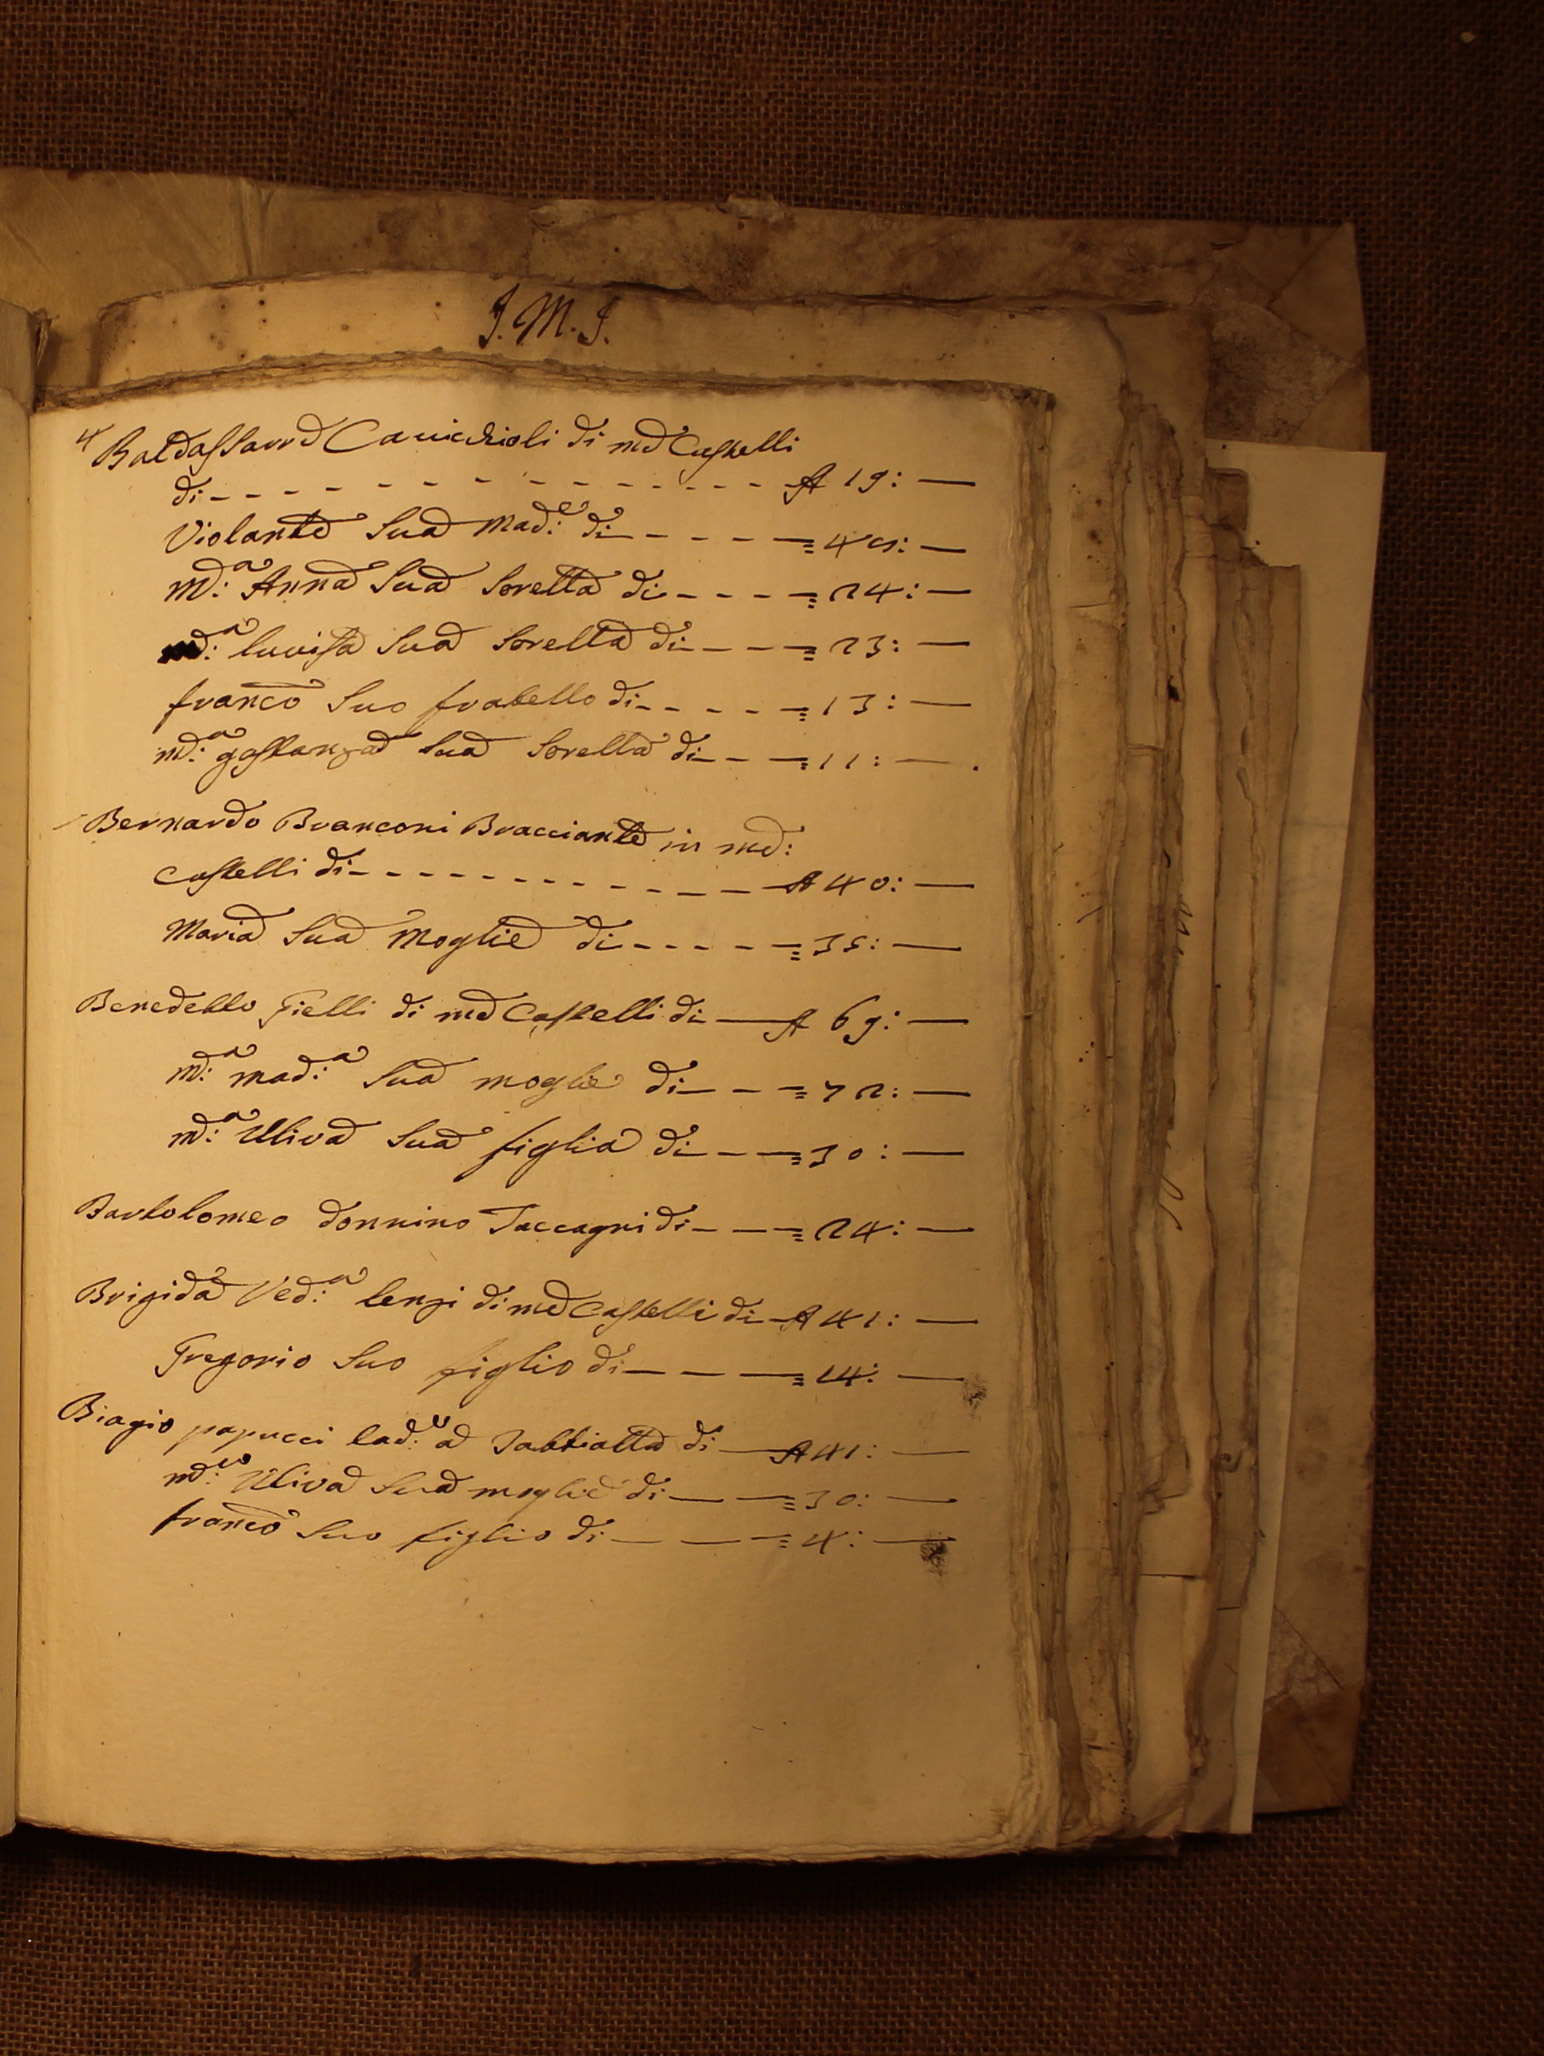 J. M. J.
4 Baldassarre Cavicchioli di md Castelli
di A 19:
Violante Sua Mad:e di = 45:
Md:a Anna Sua Sorella di = 24:
md:a luvisa Sua Sorella di = 23:
franco Suo fratello di = 13:
md:a gostanza Sua Sorella di = 11:
Bernardo Branconi Bracciante in md:
Castelli di A 40:
Maria Sua Moglie di = 35:
Benedetto Gielli di md Castelli di A 69:
md:a mad:a Sua moglie di = 72:
md:a Uliva Sua figlia di = 30:
Bartolomeo donnino Taccagni di = 24:
Brigida Ved:a lenzi di md Castelli di A 41:
Gregorio Suo figlio di = 14:
Biagio papucci lad:e a Sabbiatta di A 41:
md:a Uliva Sua moglie di = 30:
franco Suo figlio di = 4: